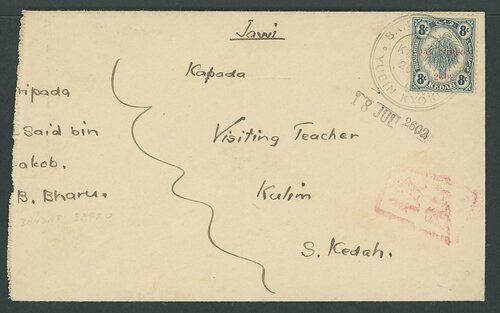 Jawi
Kapada
Visiting Teacher
Kulim
S. Kedah.
ripada
Said bin
akob.
B. Bharu.
BANDAR BAHRU
8c 8c
KEDAH
2602
18 JUL 2602
YUBIN KYOK